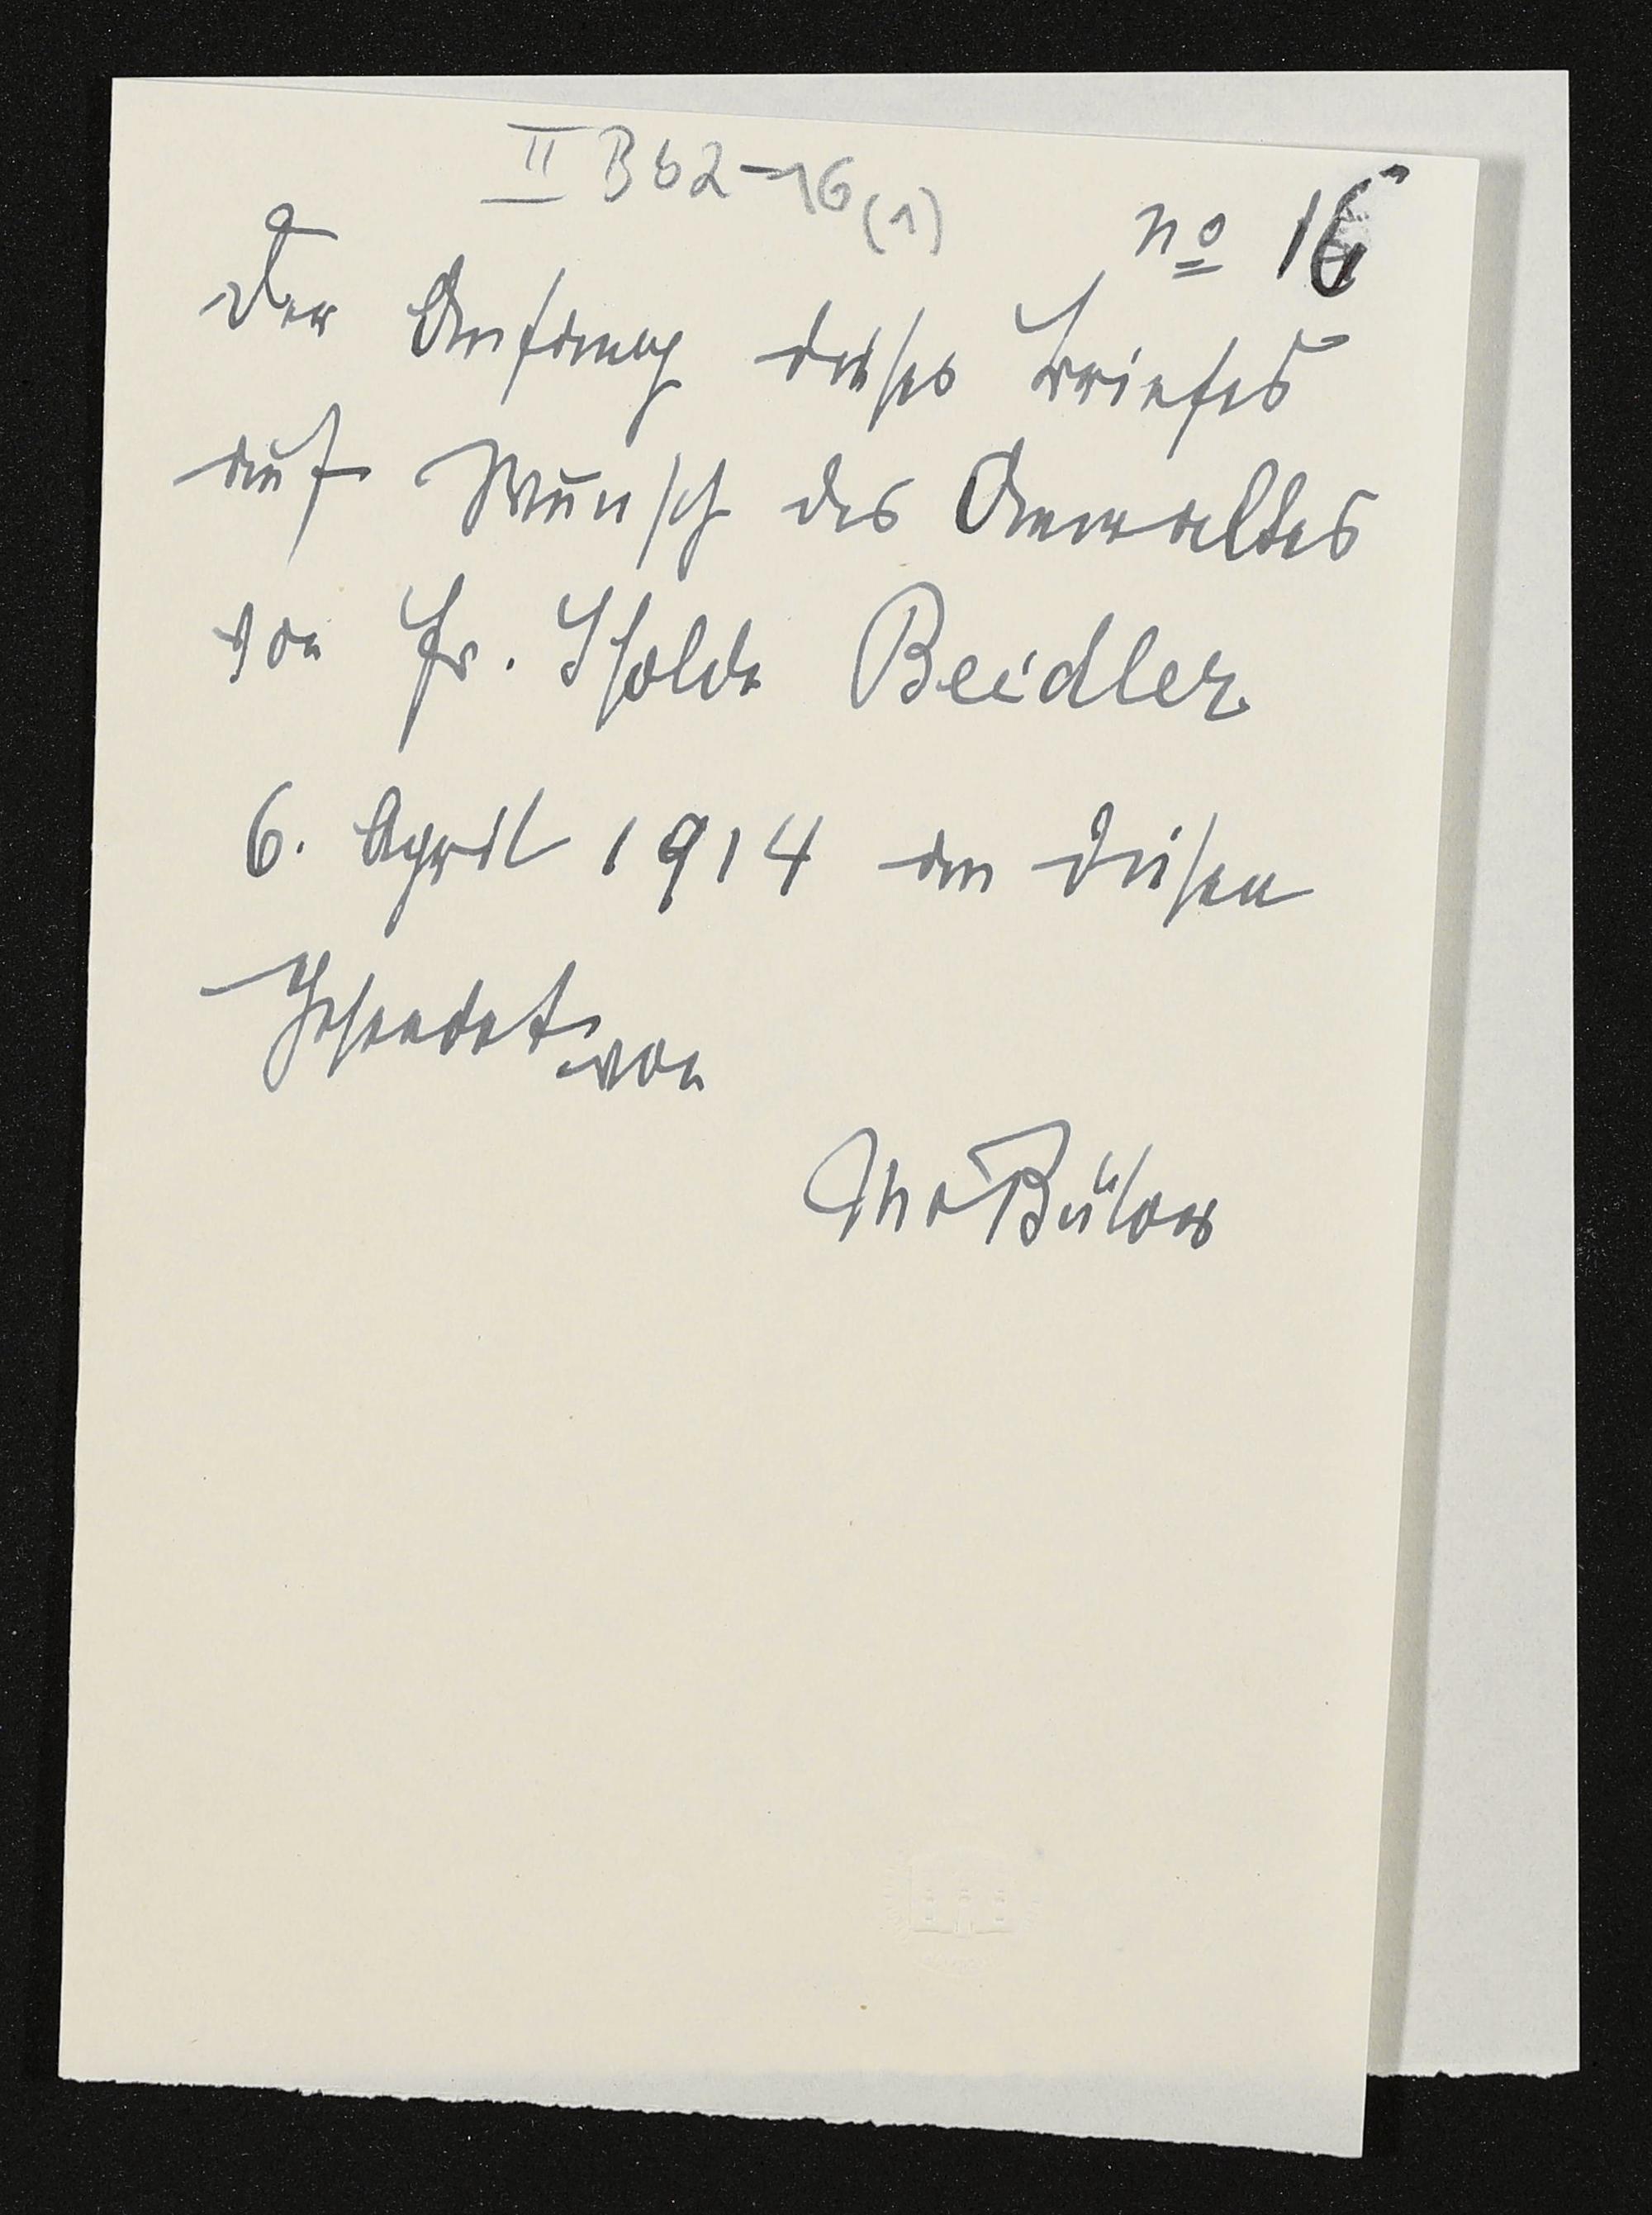 II B b 2-16 (1)
no 16
Der Anfang dieses Briefes
auf Wunsch des Anwaltes
von Fr. Isolde Beidler
6. April 1914 an diesen
Gesendet von
Bülow